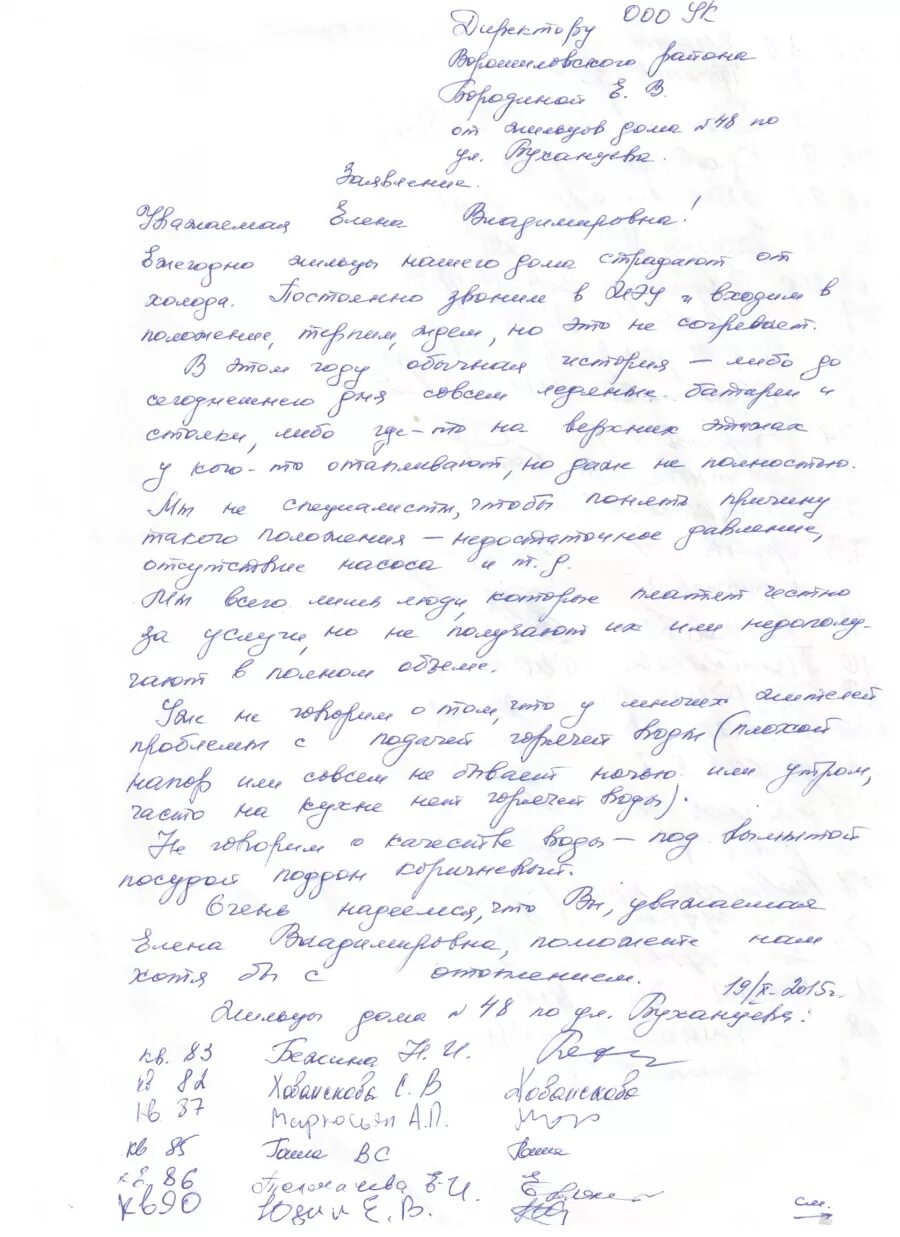 Директору ООО УК
Ворошиловского района
Бородиной Е. В.
от жильцов дома №48 по
ул. Буханцева.
Заявление.
Уважаемая Елена Владимировна!
Ежегодно жильцы нашего дома страдают от
холода. Постоянно звоним в ЖЭУ и входим в
положение, терпим, ждем, но это не согревает.
В этом году обычная история – либо до
сегоднешнего дня совсем ледяные батареи и
стояки, либо где-то на верхних этажах
у кого-то отапливают, но даж не полностью.
Мы не специалисты, чтобы понять причину
такого положения – недостаточное давление,
отсутствие насоса и т.д.
Мы всего лишь люди, которые платят честно
за услуги, но не получают их или недополу-
чают в полном объеме.
Уж не говорим о том, что у многих жителей
проблемы с подачей горячей воды (плохой
напор или совсем не бывает ночью или утром,
часто на кухне нет горячей воды).
Не говорим о качестве воды – под вымытой
посудой поддон коричневый.
Очень надеемся, что Вы, уважаемая
Елена Владимировна, поможете нам
хотя бы с отоплением.
19/X-2015г.
Жильцы дома №48 по ул. Буханцева:
кв. 83 Бежина Н.И.
кв 82 Хованскова С. В Хованскова
кв. 87 Маркосьян А.П.
кв 85 Гаша ВС Гаша
кв 86 Толмачева Е.И.
кв 90 Юдин Е.В.
см.